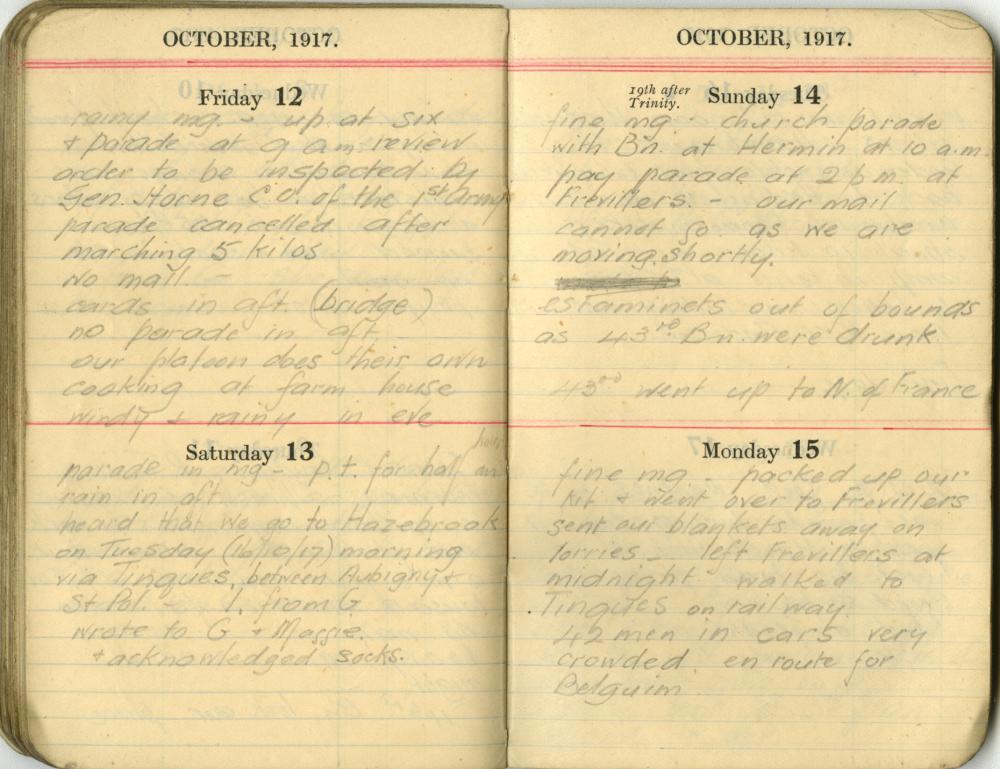 OCTOBER, 1917.
Friday 12
rainy mg. - up at six
+ parade at 9 a.m. review
order to be inspected by
Gen. Horne C.O. of the 1st Army
parade cancelled after
marching 5 kilos
No mail -
cards in aft. (bridge)
no parade in aft.
our platoon does their own
cooking at farm house
windy + rainy in eve
Saturday 13
parade in mg - p.t. for half an hour
rain in aft
heard that we go to Hazebrook
on Tuesday (16/10/17) morning
via Tingues, between Aubigny +
St Pol. - 1. from G
wrote to G + Maggie.
+ acknowledged socks.
OCTOBER, 1917.
19th after Trinity. Sunday 14
fine mg. church parade
with Bn. at Hermin at 10 a.m.
pay parade at 2 p.m. at
Frevillers. - our mail
cannot go as we are
moving shortly.
estaminets out of bounds
as 43rd Bn. were drunk
43rd went up to N. of France
Monday 15
fine mg. - packed up our
kit + went over to Frevillers
sent our blankets away on
lorries - left Frevillers at
midnight walked to
Tingues on railway.
42 men in cars very
crowded. en route for
Belguim